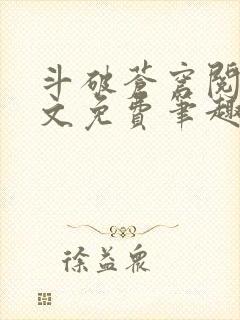 斗破苍穹阅
文免费笔趣
徐益众